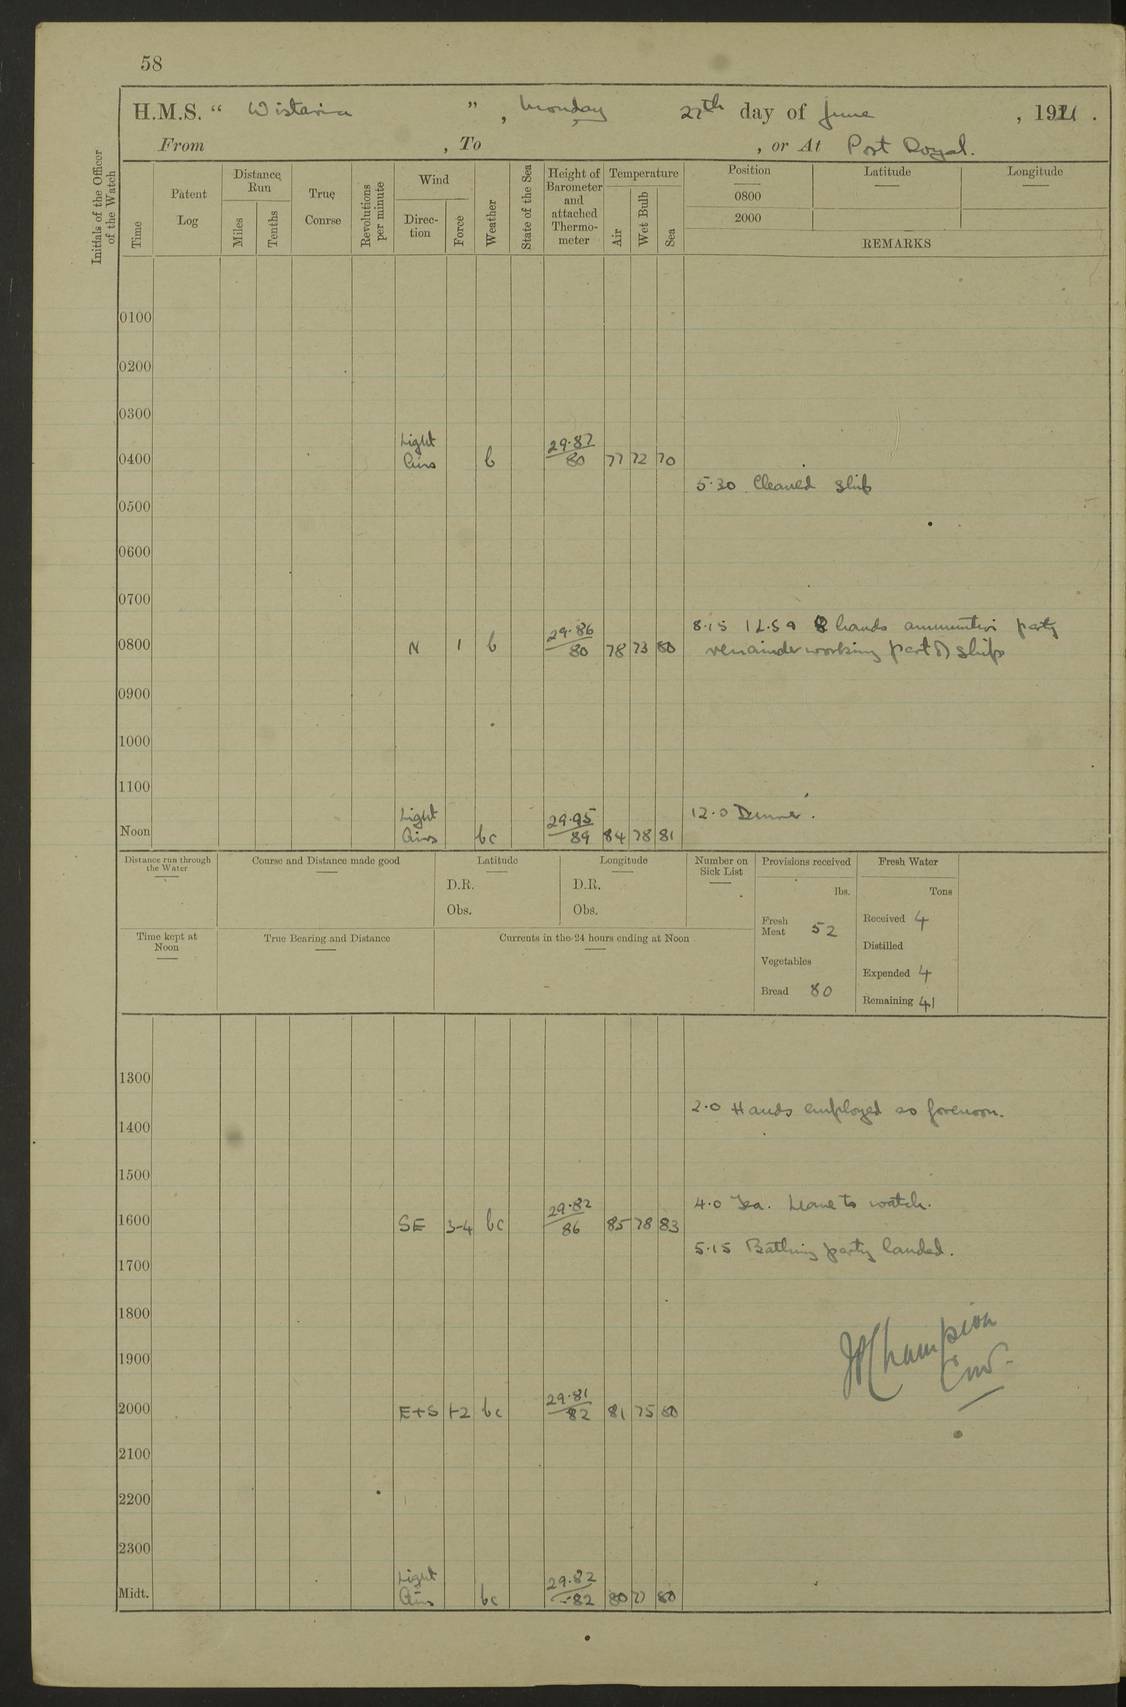 58
H.M.S. “ Wistaria ”, Monday 27th day of June, 1921.
From , To , or At Port Royal.
Initials of the Officer of the Watch
Time
Patent Log
Distance Run
Miles
Tenths
True Course
Revolutions per minute
Wind
Direction
Force
Weather
State of the Sea
Height of Barometer and attached Thermometer
Temperature
Air
Wet Bulb
Sea
Position Latitude Longitude
0800
2000
REMARKS
0100
0200
0300
0400 Light Airs b 29.87 80 77 72 70
5.30 Cleaned ship
0500
0600
0700
8.15 1 L.S 9 8 hands ammunition party
0800 N 1 b 29.86 80 78 73 80 remainder working part of ship
0900
1000
1100
12.0 Dinner.
Noon Light Airs bc 29.95 89 84 78 81
Distance run through the Water
Course and Distance made good
Latitude
D.R.
Obs.
Longitude
D.R.
Obs.
Number on Sick List
Provisions received
lbs.
Fresh Meat 52
Vegetables
Bread 80
Fresh Water
Tons
Received 4
Distilled
Expended 4
Remaining 41
Time kept at Noon
True Bearing and Distance
Currents in the 24 hours ending at Noon
1300
2.0 Hands employed as forenoon.
1400
1500
4.0 Tea. Leave to watch.
1600 SE 3-4 bc 29.82 86 85 78 83
5.15 Bathing party landed.
1700
1800
1900
Champion
2000 E+S 1-2 bc 29.81 82 81 75 80
2100
2200
2300
Midt. Light Airs bc 29.82 82 80 77 80